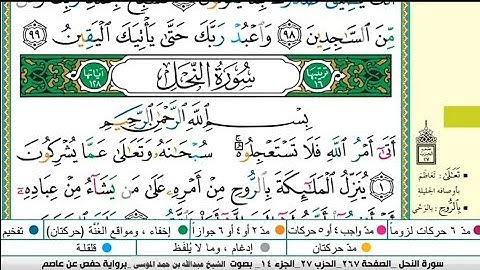 مِّنَ ٱلسَّٰجِدِينَ ٩٨ وَٱعۡبُدۡ رَبَّكَ حَتَّىٰ يَأۡتِيَكَ ٱلۡيَقِينُ ٩٩
ترتيبها ١٦ سُورَةُ النَّحْلِ آياتها ١٢٨
بِسۡمِ ٱللَّهِ ٱلرَّحۡمَٰنِ ٱلرَّحِيمِ
أَتَىٰٓ أَمۡرُ ٱللَّهِ فَلَا تَسۡتَعۡجِلُوهُۚ سُبۡحَٰنَهُۥ وَتَعَٰلَىٰ عَمَّا يُشۡرِكُونَ
١ يُنَزِّلُ ٱلۡمَلَٰٓئِكَةَ بِٱلرُّوحِ مِنۡ أَمۡرِهِۦ عَلَىٰ مَن يَشَآءُ مِنۡ عِبَادِهِۦٓ
تَعَالَى: تَعَاظَمَ
بأوصافه الجليلة
بِالرُّوحِ: بالوَحْيِ
مدّ ٦ حركات لزوماً مدّ واجب ٤ أو ٥ حركات مدّ ٢ أو ٤ أو ٦ جوازاً إخفاء ، ومواقع الغُنَّة (حركتان) تفخيم
مدّ حركتان إدغام ، وما لا يُلفَظ قلقلة
سورة النحل _الصفحة ٢٦٧_الحزب ٢٧_الجزء ١٤_ بصوت الشيخ عبدالله بن حمد الموسى _برواية حفص عن عاصم